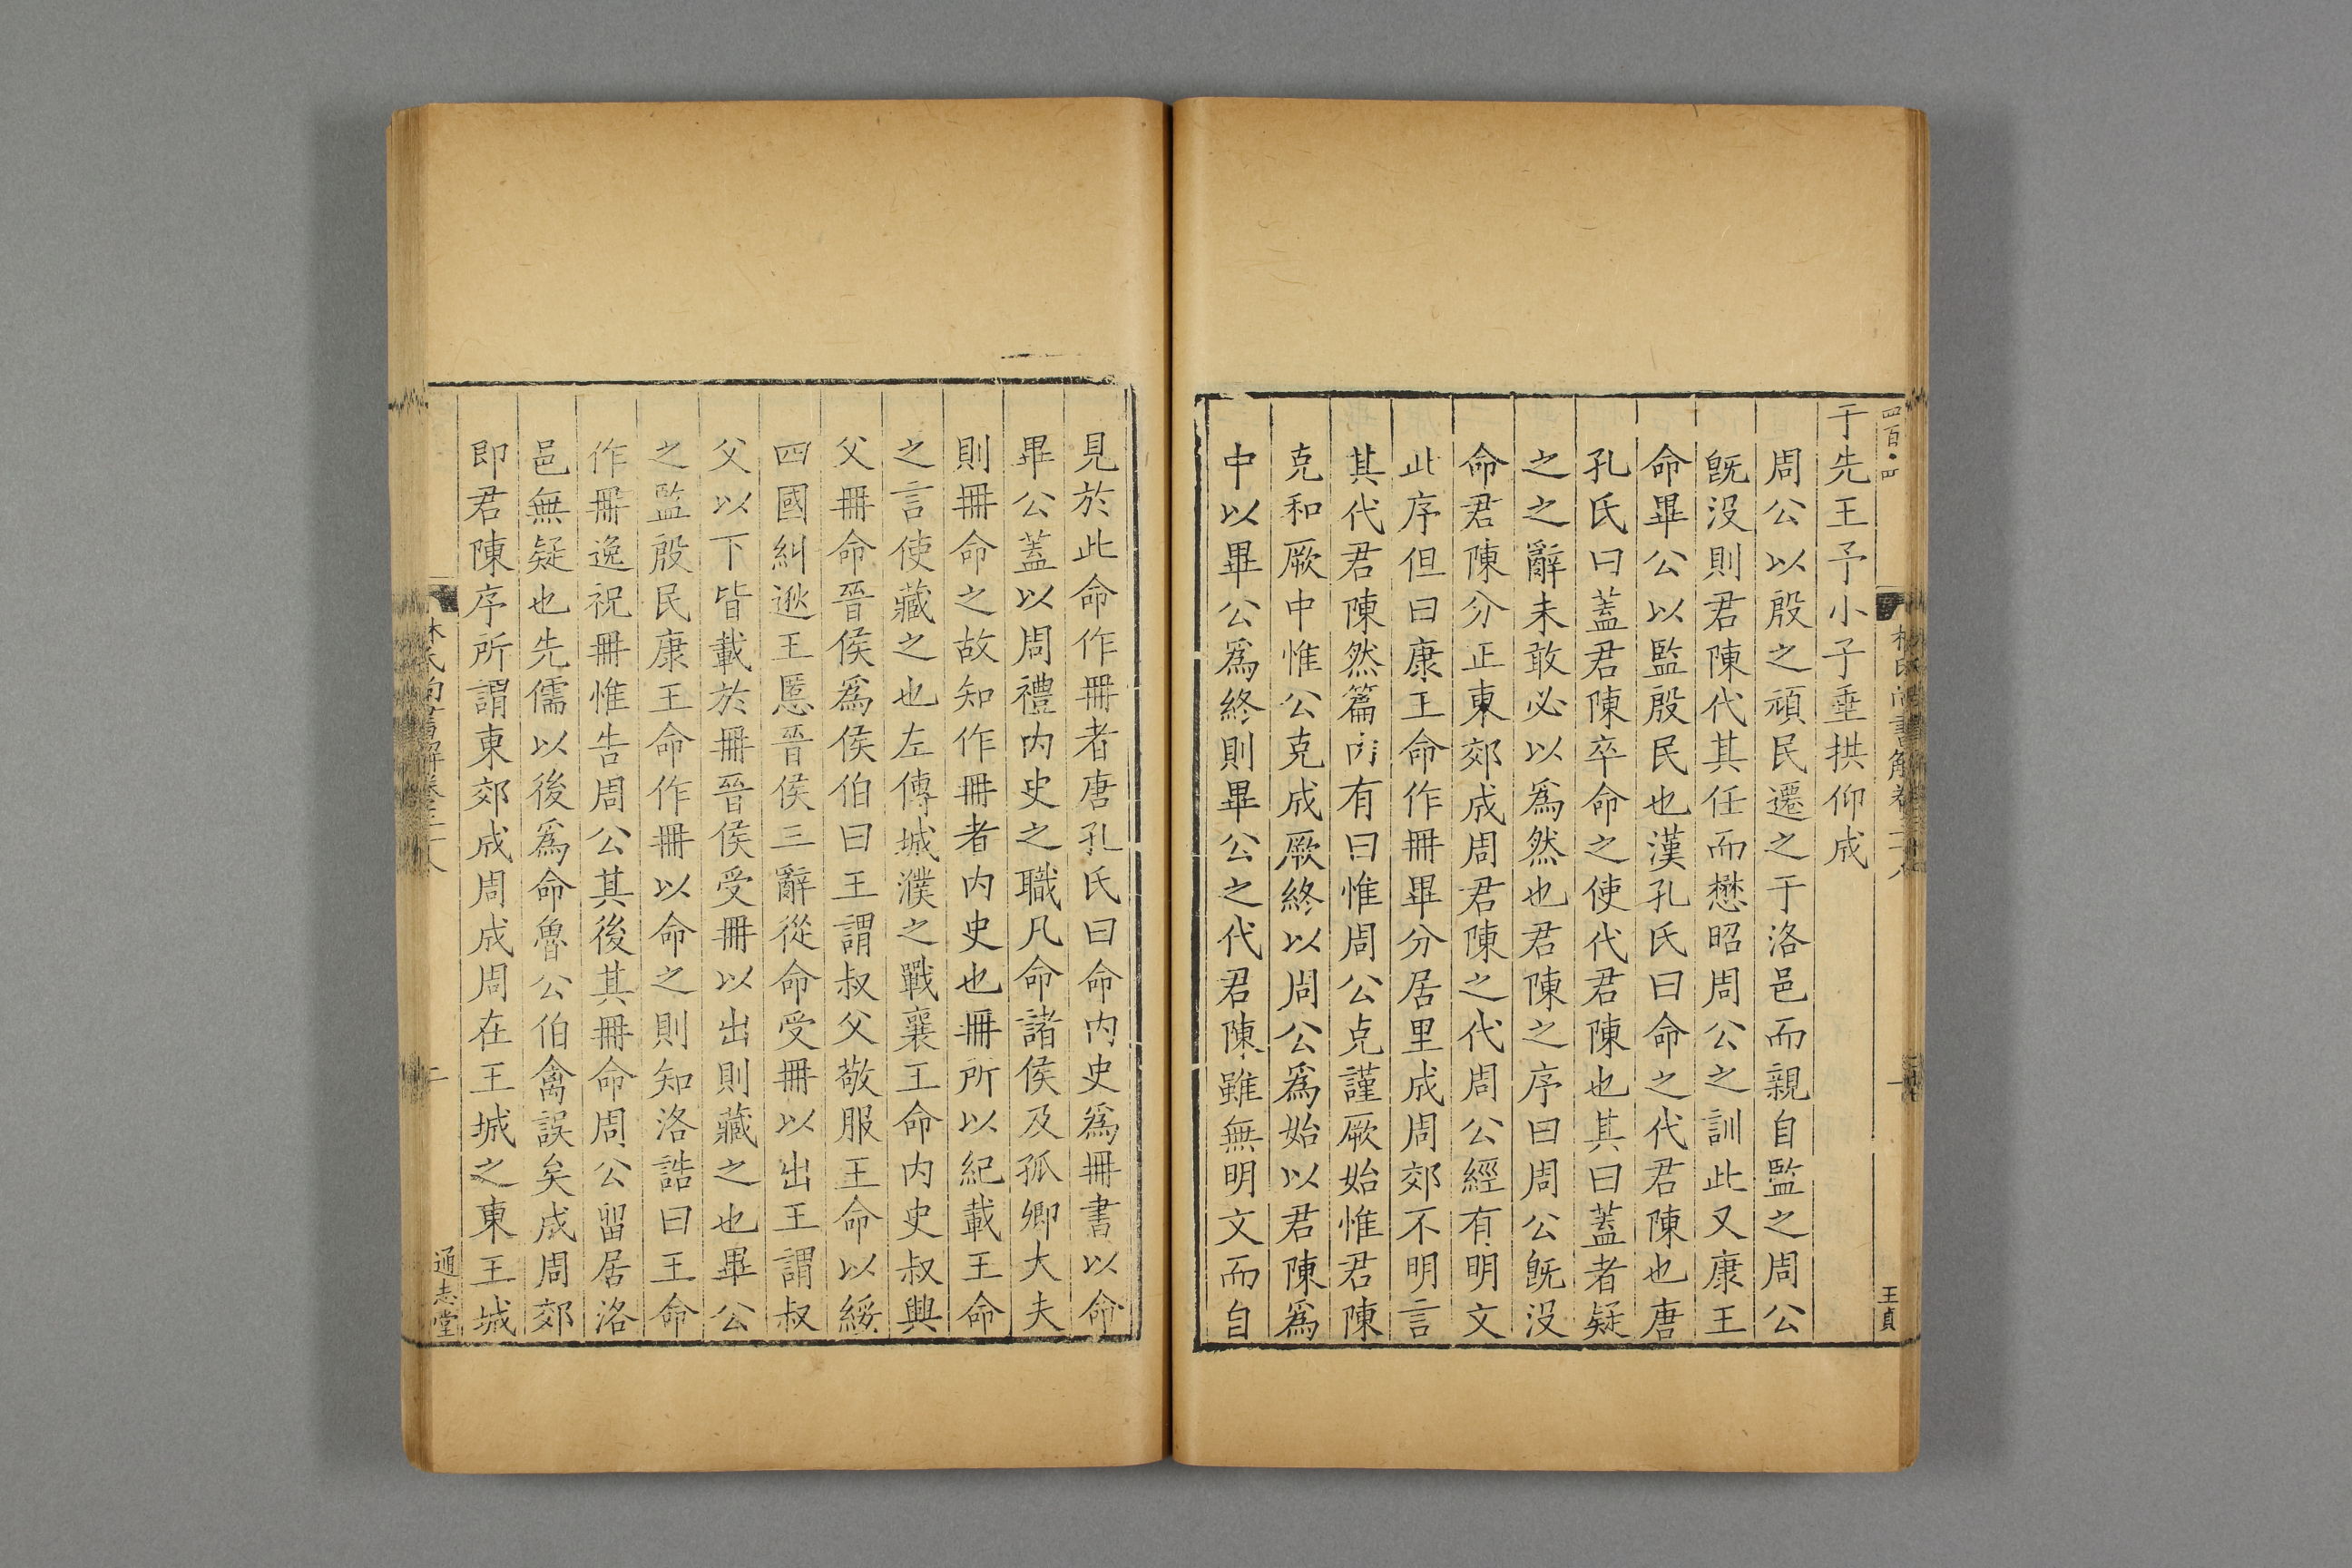 四百四
王貞
于先王予小子垂拱仰成
周公以殷之頑民遷之于洛邑而親自監之周公
旣沒則君陳代其任而懋昭周公之訓此又康王
命畢公以監殷民也漢孔氏曰命之代君陳也唐
孔氏曰蓋君陳卒命之使代君陳也其曰蓋者疑
之之辭未敢必以爲然也君陳之序曰周公旣沒
命君陳分正東郊成周君陳之代周公經有明文
此序但曰康王命作冊畢分居里成周郊不明言
其代君陳然篇內有曰惟周公克謹厥始惟君陳
克和厥中惟公克成厥終以周公爲始以君陳爲
中以畢公爲終則畢公之代君陳雖無明文而自
見於此命作冊者唐孔氏曰命內史爲冊書以命
畢公蓋以周禮內史之職凡命諸侯及孤卿大夫
則冊命之故知作冊者內史也冊所以紀載王命
之言使藏之也左傳城濮之戰襄王命內史叔興
父冊命晉侯爲侯伯曰王謂叔父敬服王命以綏
四國糾逖王慝晉侯三辭從命受冊以出王謂叔
父以下皆載於冊晉侯受冊以出則藏之也畢公
之監殷民康王命作冊以命之則知洛誥曰王命
作冊逸祝冊惟告周公其後其冊命周公留居洛
邑無疑也先儒以後爲命魯公伯禽誤矣成周郊
即君陳序所謂東郊成周成周在王城之東王城
二
通志堂